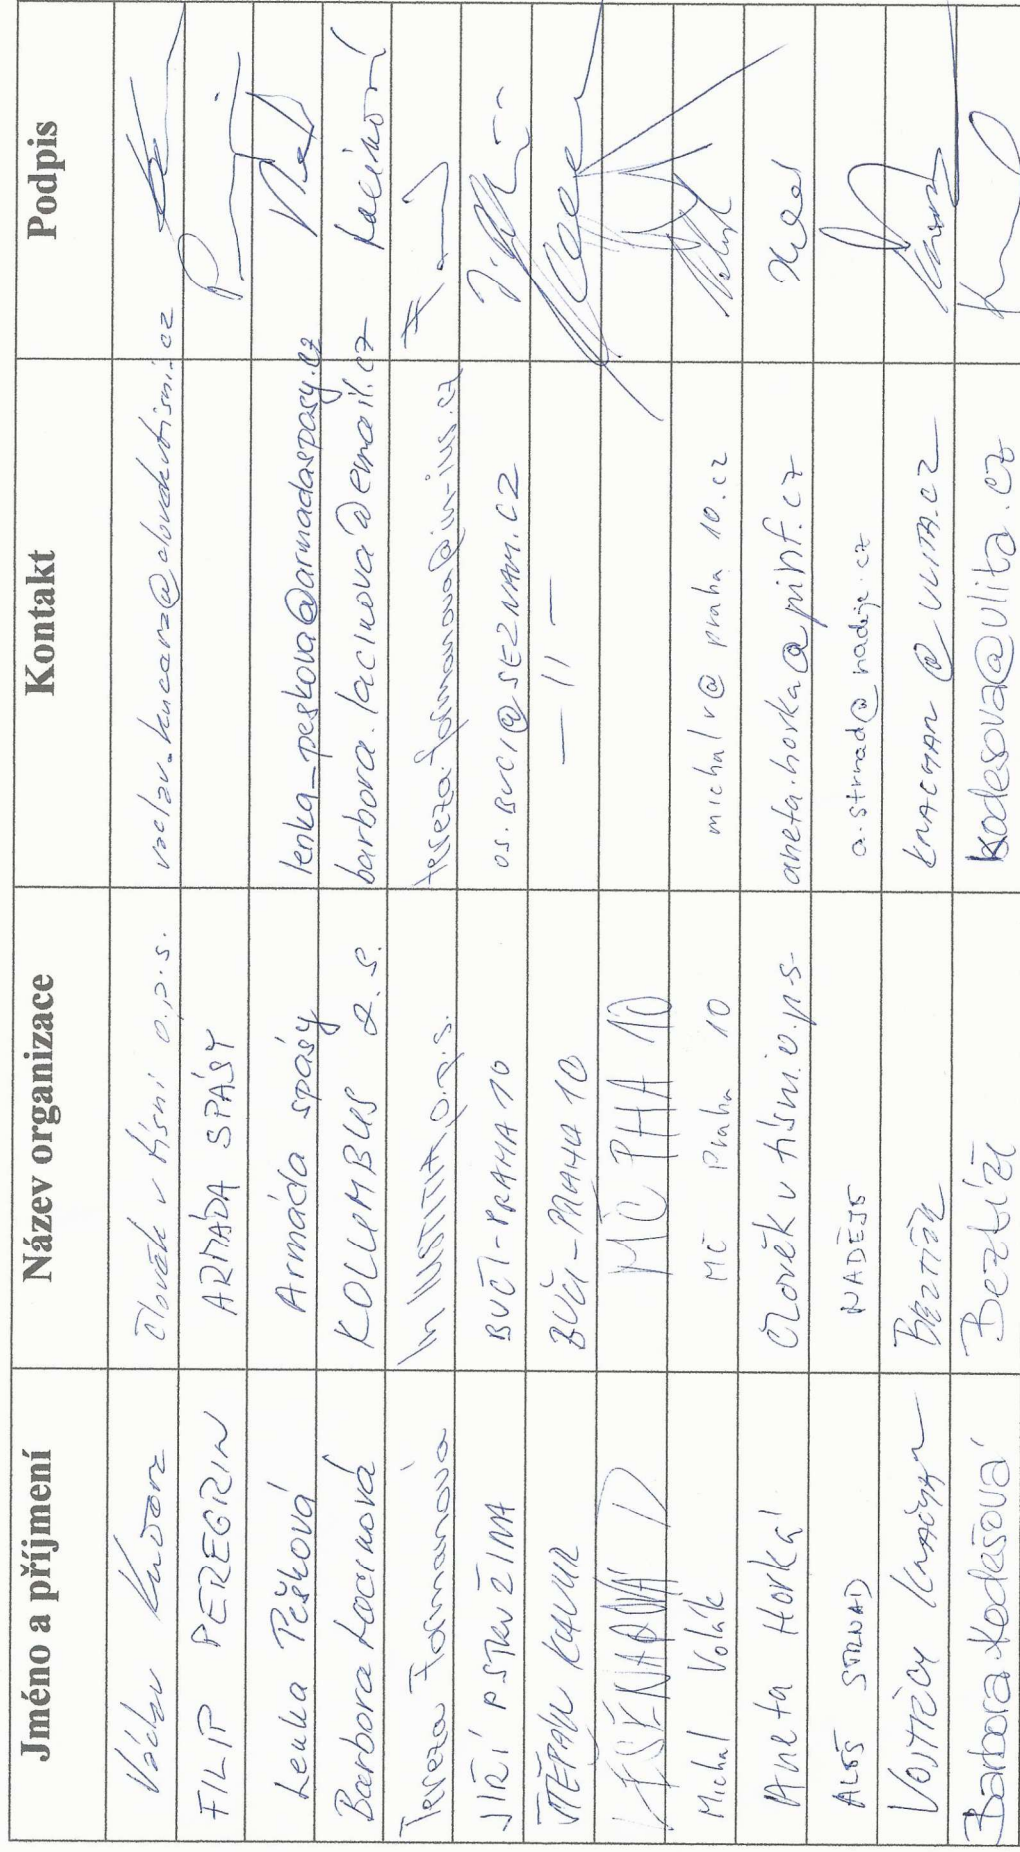 Jméno a příjmení Název organizace Kontakt Podpis
Václav Kučera Člověk v tísni o.p.s. vaclav.kucera@clovekvtisni.cz
FILIP PEREGRIN ARMÁDA SPÁSY
Lenka Pešková Armáda spásy lenka_peskova@armadaspasy.cz
Barbora Lacinová KOLUMBUS z.s. barbora.lacinova@email.cz Lacinová
Tereza Formanová In IUSTITIA o.p.s. tereza.formanova@in-ius.cz
JIŘÍ PSTRUŽINA BUČI-PRAHA 10 OS.BUCI@SEZNAM.CZ
ŠTĚPÁN BUČI-PRAHA 10 —11—
MČ PHA 10
Michal Volák MČ Praha 10 michalv@praha10.cz
Aneta Horká Člověk v tísni.o.p.s. aneta.horka@pinf.cz
ALEŠ STRNAD NADĚJE a.strnad@nadeje.cz
VOJTĚCH BEZTÍŽE @VLITA.CZ
Barbora Kodašová Beztíže kodasova@ulita.cz